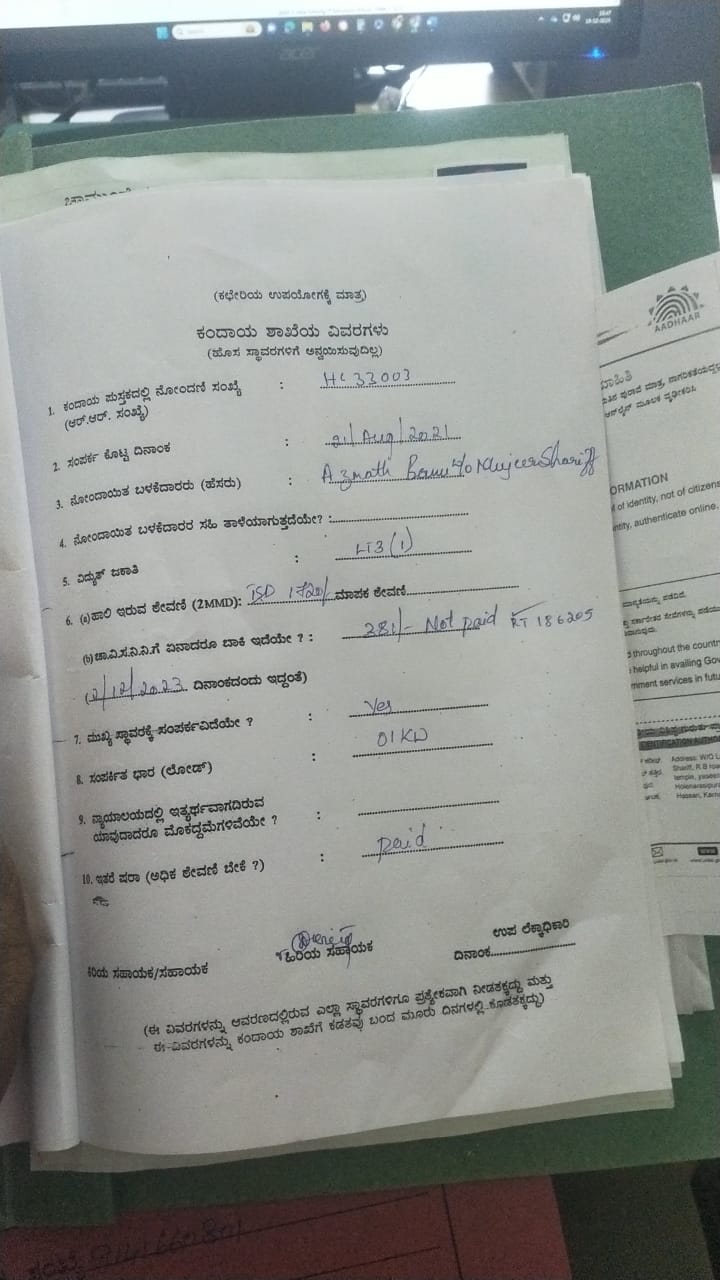 acer
(ಕಛೇರಿಯ ಉಪಯೋಗಕ್ಕೆ ಮಾತ್ರ)
ಕಂದಾಯ ಶಾಖೆಯ ವಿವರಗಳು
(ಹೊಸ ಸ್ಥಾವರಗಳಿಗೆ ಅನ್ವಯಿಸುವುದಿಲ್ಲ)
1. ಕಂದಾಯ ಪುಸ್ತಕದಲ್ಲಿ ನೋಂದಣಿ ಸಂಖ್ಯೆ : HC 33003
(ಆರ್.ಆರ್. ಸಂಖ್ಯೆ)
2. ಸಂಪರ್ಕ ಕೊಟ್ಟ ದಿನಾಂಕ : 21/Aug/2021
3. ನೋಂದಾಯಿತ ಬಳಕೆದಾರರು (ಹೆಸರು) : Azmath Banu w/o Mujeer Shariff
4. ನೋಂದಾಯಿತ ಬಳಕೆದಾರರ ಸಹಿ ತಾಳೆಯಾಗುತ್ತದೆಯೇ? :
5. ವಿದ್ಯುತ್ ಜಕಾತಿ : LT3(1)
6. (a) ಹಾಲಿ ಇರುವ ಠೇವಣಿ (2MMD): ISD 1720/- ಮಾಪಕ ಠೇವಣಿ
(b) ಚಾ.ವಿ.ಸ.ನಿ.ನಿ.ಗೆ ಏನಾದರೂ ಬಾಕಿ ಇದೆಯೇ ? : 381/- Not paid RT 186205
(2/12/2023 ದಿನಾಂಕದಂದು ಇದ್ದಂತೆ)
7. ಮುಖ್ಯ ಸ್ಥಾವರಕ್ಕೆ ಸಂಪರ್ಕವಿದೆಯೇ ? : Yes
8. ಸಂಪರ್ಕಿತ ಭಾರ (ಲೋಡ್) : 01 KW
9. ನ್ಯಾಯಾಲಯದಲ್ಲಿ ಇತ್ಯರ್ಥವಾಗದಿರುವ
ಯಾವುದಾದರೂ ಮೊಕದ್ದಮೆಗಳಿವೆಯೇ ? :
10. ಇತರೆ ಷರಾ (ಅಧಿಕ ಠೇವಣಿ ಬೇಕೆ ?) : paid
ಕಿರಿಯ ಸಹಾಯಕ/ಸಹಾಯಕ
ಹಿರಿಯ ಸಹಾಯಕ
ಉಪ ಲೆಕ್ಕಾಧಿಕಾರಿ
ದಿನಾಂಕ
(ಈ ವಿವರಗಳನ್ನು ಆವರಣದಲ್ಲಿರುವ ಎಲ್ಲಾ ಸ್ಥಾವರಗಳಿಗೂ ಪ್ರತ್ಯೇಕವಾಗಿ ನೀಡತಕ್ಕದ್ದು ಮತ್ತು
ಈ ವಿವರಗಳನ್ನು ಕಂದಾಯ ಶಾಖೆಗೆ ಕಡತವು ಬಂದ ಮೂರು ದಿನಗಳಲ್ಲಿ ಕೊಡತಕ್ಕದ್ದು)
AADHAAR
ORMATION
of identity, not of citizens
ntity, authenticate online.
throughout the countr
helpful in availing Gov
rnment services in futu
Address: W/O L
Shariff, R B roa
temple, yasees
Holenarasipur
Hassan, Karna